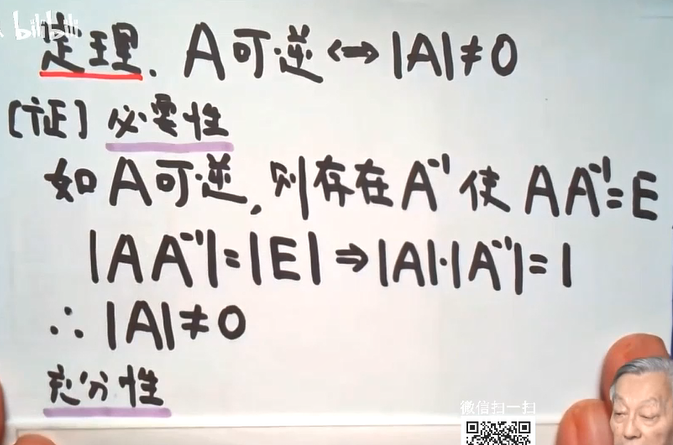 bilibili
定理. A可逆 ↔ |A|≠0
[证] 必要性
如A可逆, 则存在A⁻¹使 AA⁻¹=E
|AA⁻¹|=|E| ⇒ |A|·|A⁻¹|=1
∴ |A|≠0
充分性
微信扫一扫